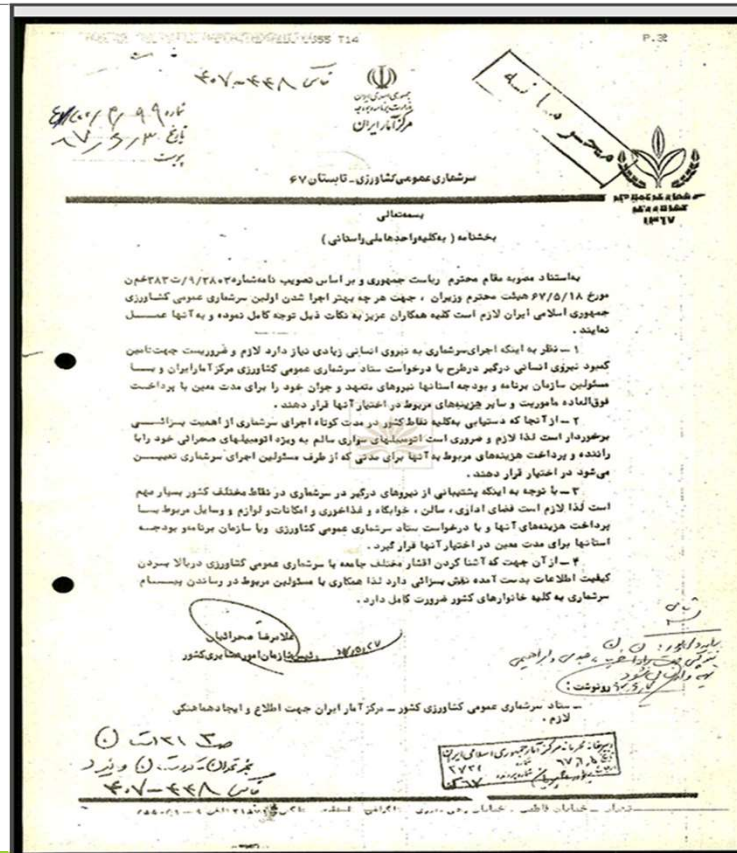 P.3
محرمانه
فاکس ۴۴۸-۴۰۷
جمهوری اسلامی ایران
وزارت برنامه و بودجه
مرکز آمار ایران
شماره
تاریخ
پیوست
سرشماری عمومی کشاورزی - تابستان ۶۷
۱۳۶۷
بسمه‌تعالی
بخشنامه ( به‌کلیه واحدهای ملی و استانی )
به‌استناد مصوبه مقام محترم ریاست جمهوری و بر اساس تصویب نامه‌شماره
مورخ ۶۷/۵/۱۸ هیئت محترم وزیران ، جهت هر چه بهتر اجرا شدن اولین سرشماری عمومی کشاورزی
جمهوری اسلامی ایران لازم است کلیه همکاران عزیز به نکات ذیل توجه کامل نموده و به آنها عمــل
نمایند .
۱ – نظر به اینکه اجرای‌سرشماری به نیروی انسانی زیادی نیاز دارد لازم و ضروریست جهت‌تامین
کمبود نیروی انسانی درگیر درطرح با درخواست ستاد سرشماری عمومی کشاورزی مرکزآمارایران و بــا
مسئولین سازمان برنامه و بودجه استانها نیروهای متعهد و جوان خود را برای مدت معین با پرداخــت
فوق‌العاده ماموریت و سایر هزینه‌های مربوط در اختیار آنها قرار دهند .
۲ – از آنجا که دستیابی به‌کلیه نقاط کشور در مدت کوتاه اجرای سرشماری از اهمیت بــزائــی
برخوردار است لذا لازم و ضروری است اتومبیلهای سواری سالم به ویژه اتومبیلهای صحرائی خود رابا
راننده و پرداخت هزینه‌های مربوط به آنها برای مدتی که از طرف مسئولین اجرای سرشماری تعییــن
می‌شود در اختیار قرار دهند .
۳ – با توجه به اینکه پشتیبانی از نیروهای درگیر در سرشماری در نقاط مختلف کشور بسیار مهم
است لذا لازم است فضای اداری ، سالن ، خوابگاه و غذاخوری و امکانات‌و لوازم و وسایل مربوط بــا
پرداخت هزینه‌های آنها و با درخواست ستاد سرشماری عمومی کشاورزی وبا سازمان برنامه‌و بودجــه
استانها برای مدت معین در اختیار آنها قرار گیرد .
۴ – از آن جهت که آشنا کردن اقشار مختلف جامعه با سرشماری عمومی کشاورزی دربالا بــردن
کیفیت اطلاعات بدست آمده نقش بسزائی دارد لذا همکاری با مسئولین مربوط در رساندن پیــام
سرشماری به کلیه خانوارهای کشور ضرورت کامل دارد .
غلامرضا صحرائیان
رئیس‌سازمان‌امورعشایری‌کشور
رونوشت :
– ستاد سرشماری عمومی کشاورزی کشور – مرکز آمار ایران جهت اطلاع و ایجاد هماهنگی
لازم .
دبیرخانه محرمانه مرکز آمار جمهوری اسلامی ایران
فاکس ۴۴۸-۴۰۷